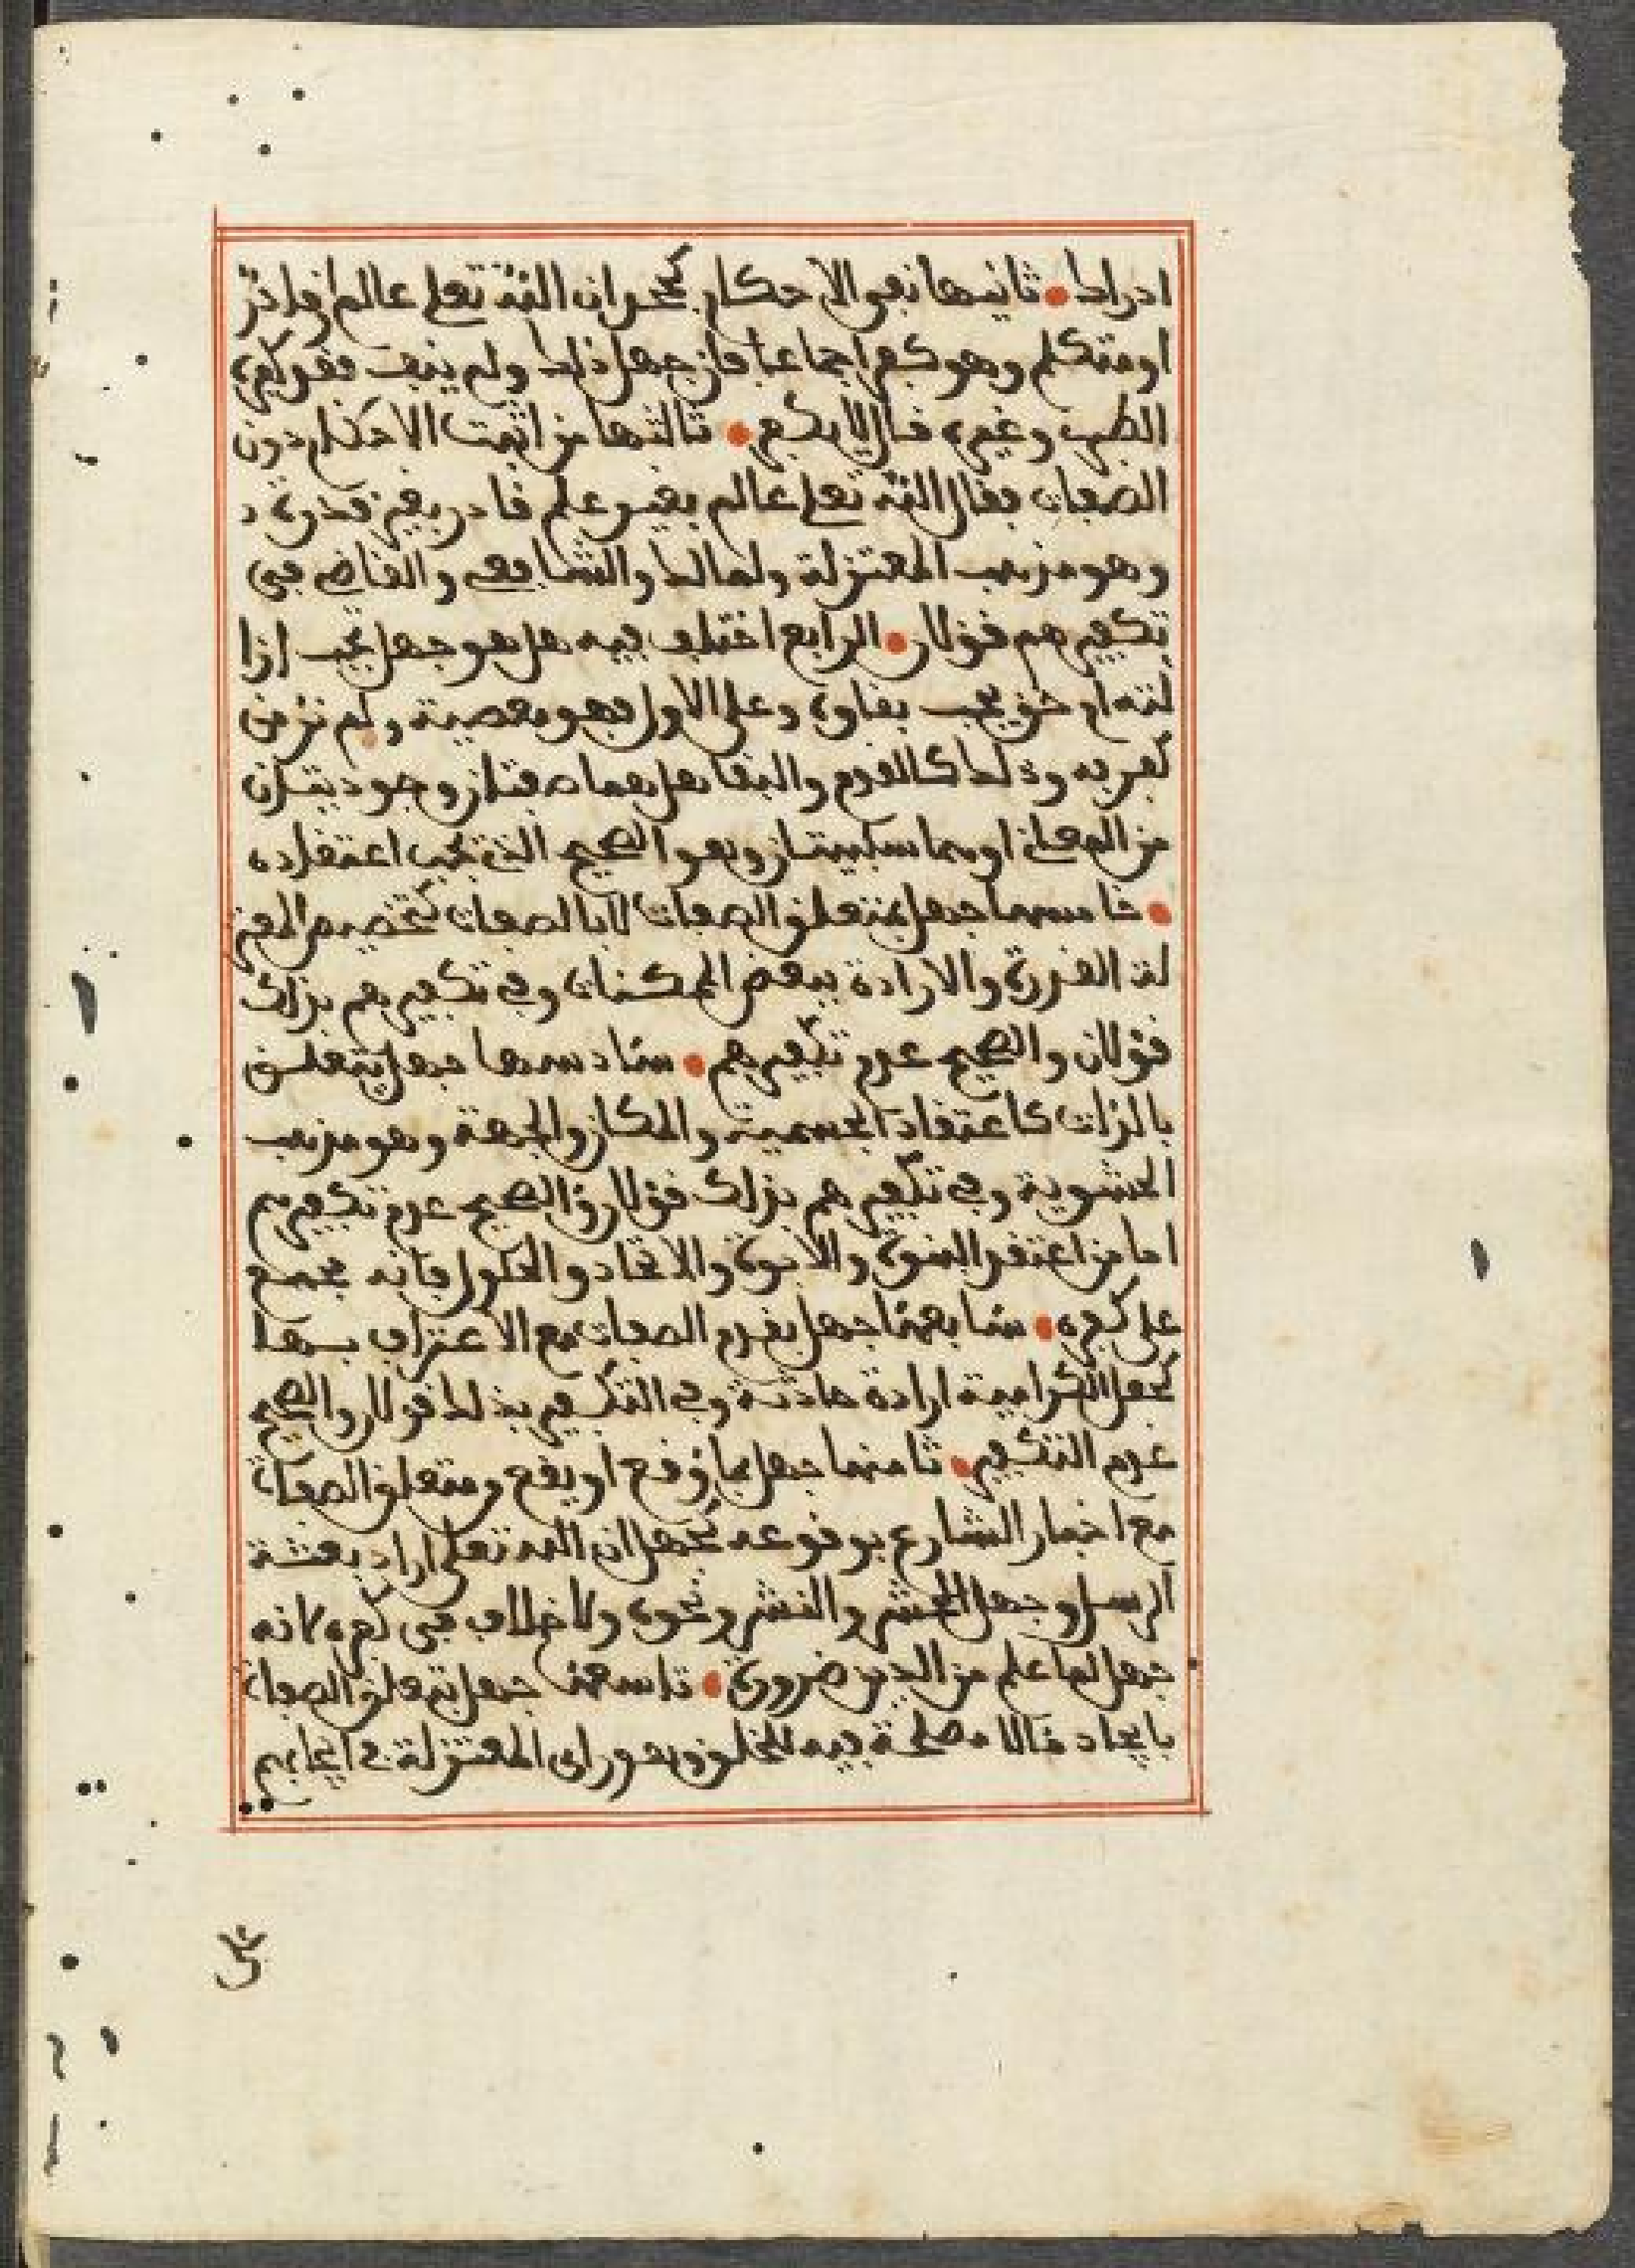 ادراك • ثانيها نفي الاحكام كجحد ان الله تعلى عالم او قادر
او متكلم وهو كفر اجماعا فان جهل ذلك ولم ينف فقد كفره
الطبري وغيره قال لا يكفر • ثالثها من اثبت الاحكام دون
الصفات فقال الله تعلى عالم بغير علم قادر بغير قدرة
وهو مذهب المعتزلة ولمالك والشافعي والقاضي في
تكفيرهم قولان • الرابع اختلف فيه هل هو جهل يجب ازا
لته او حق يجب بقاؤه وعلى الاول فهو معصية ولم نر من
كفر به وذلك كالقدم والبقا هل هما صفتان وجوديتان
من المعاني او هما سلبيتان وهو الصحيح الذي يجب اعتقاده
• خامسها جهل بمتعلق الصفات لا بالصفات كتخصيص المعتز
لة القدرة والارادة ببعض الممكنات وفي تكفيرهم بذلك
قولان والصحيح عدم تكفيرهم • سادسها جهل يتعلق
بالذات كاعتقاد الجسمية والمكان والجهة وهو مذهب
الحشوية وفي تكفيرهم بذلك قولان والصحيح عدم تكفيرهم
اما من اعتقد البنوة والابوة والاتحاد والحلول فانه مجمع
على كفره • سابعها جهل بقدم الصفات مع الاعتراف بها
كجعل الكرامية ارادة حادثة وفي التكفير بذلك قولان والصحيح
عدم التكفير • ثامنها جهل بما وقع او يقع ومتعلق الصفات
مع اخبار الشارع بوقوعه كجهل ان الله تعلى اراد بعثة
الرسل وجهل الحشر والنشر ونحوه ولا خلاف في كفره لانه
جهل لما علم من الدين ضرورة • تاسعها جهل بتعلق الصفات
بايجاد ما لا مصلحة فيه للخلق وهو راي المعتزلة في ايجابهم
على